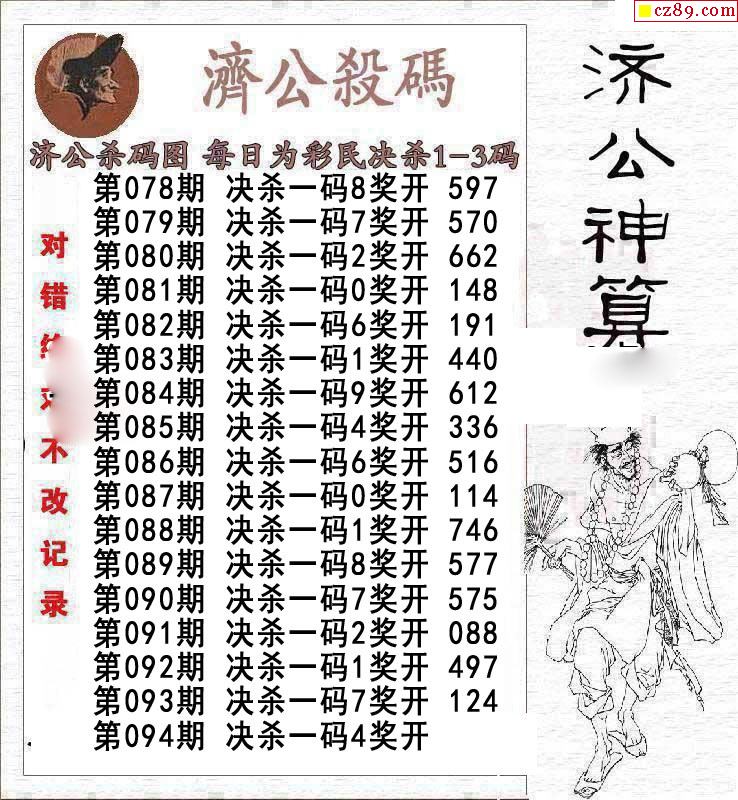 cz89.com
濟公殺碼
济公杀码图 每日为彩民决杀1-3码
第078期 决杀一码8奖开 597
第079期 决杀一码7奖开 570
第080期 决杀一码2奖开 662
第081期 决杀一码0奖开 148
第082期 决杀一码6奖开 191
第083期 决杀一码1奖开 440
第084期 决杀一码9奖开 612
第085期 决杀一码4奖开 336
第086期 决杀一码6奖开 516
第087期 决杀一码0奖开 114
第088期 决杀一码1奖开 746
第089期 决杀一码8奖开 577
第090期 决杀一码7奖开 575
第091期 决杀一码2奖开 088
第092期 决杀一码1奖开 497
第093期 决杀一码7奖开 124
第094期 决杀一码4奖开
对错不改记录
济公神算